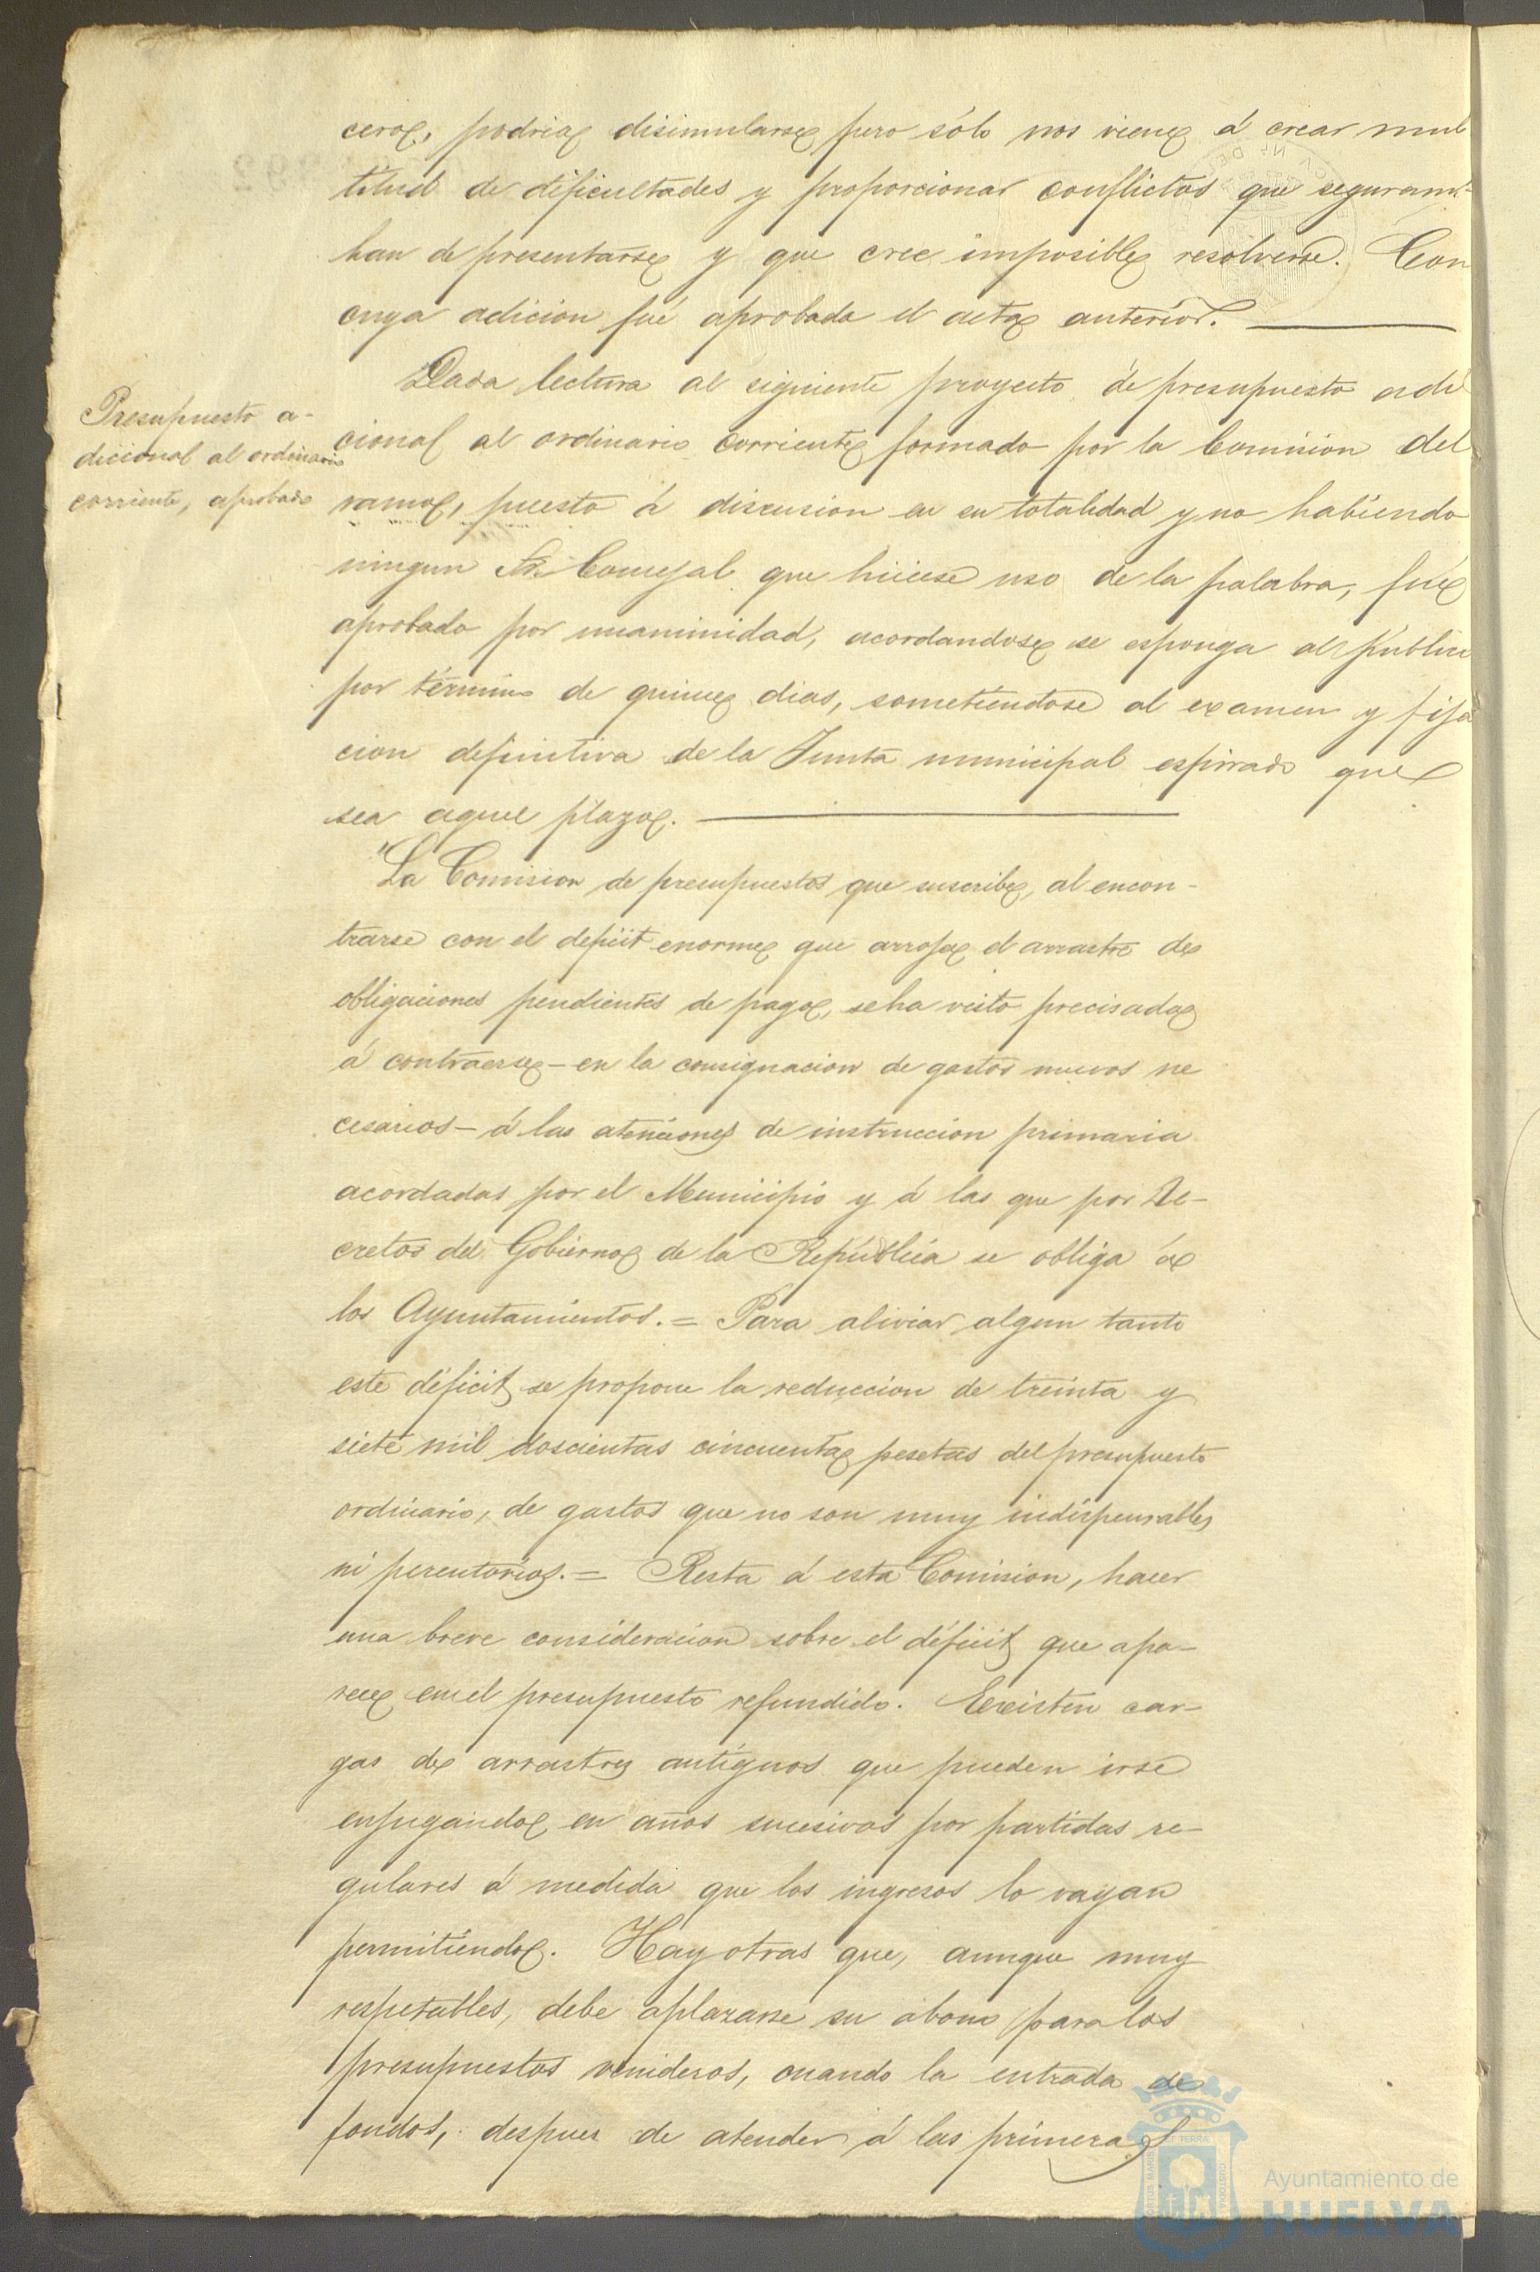 cero, podria disimularse pero sólo nos viene á crear mul
titud de dificultades y proporcionar conflictos que seguramte
han de presentarse y que cree imposible resolverse. Con
cuya adicion fué aprobada el acta anterior.
Presupuesto a-
dicional al ordinario
corriente, aprobado
Dada lectura al siguiente proyecto de presupuesto adi
cional al ordinario corriente formado por la Comision del
ramo, puesto á discusion en su totalidad y no habiendo
ningun Sr. Concejal que hiciese uso de la palabra, fué
aprobado por unanimidad, acordandose se esponga al público
por término de quince dias, sometiéndose al examen y fija
cion definitiva de la Junta municipal espirado que
sea aquel plazo.
"La Comision de presupuestos que suscribe, al encon-
trarse con el deficit enorme que arroja el arrastre de
obligaciones pendientes de pago, se ha visto precisada
á contraerse - en la consignacion de gastos nuevos ne
cesarios - á las atenciones de instruccion primaria
acordadas por el Municipio y á las que por De-
cretos del Gobierno de la República se obliga á
los Ayuntamientos. = Para aliviar algun tanto
este déficit se propone la reduccion de treinta y
siete mil doscientas cincuenta pesetas del presupuesto
ordinario, de gastos que no son muy indispensables
ni perentorios. = Resta á esta Comision, hacer
una breve consideracion sobre el déficit que apa-
rece en el presupuesto refundido. Existen car-
gas de arrastres antiguos que pueden irse
enjugando en años sucesivos por partidas re-
gulares á medida que los ingresos lo vayan
permitiendo. Hay otras que, aunque muy
respetables, debe aplazarse su abono para los
presupuestos venideros, cuando la entrada de
fondos, despues de atender á las primeras
Ayuntamiento de
HUELVA